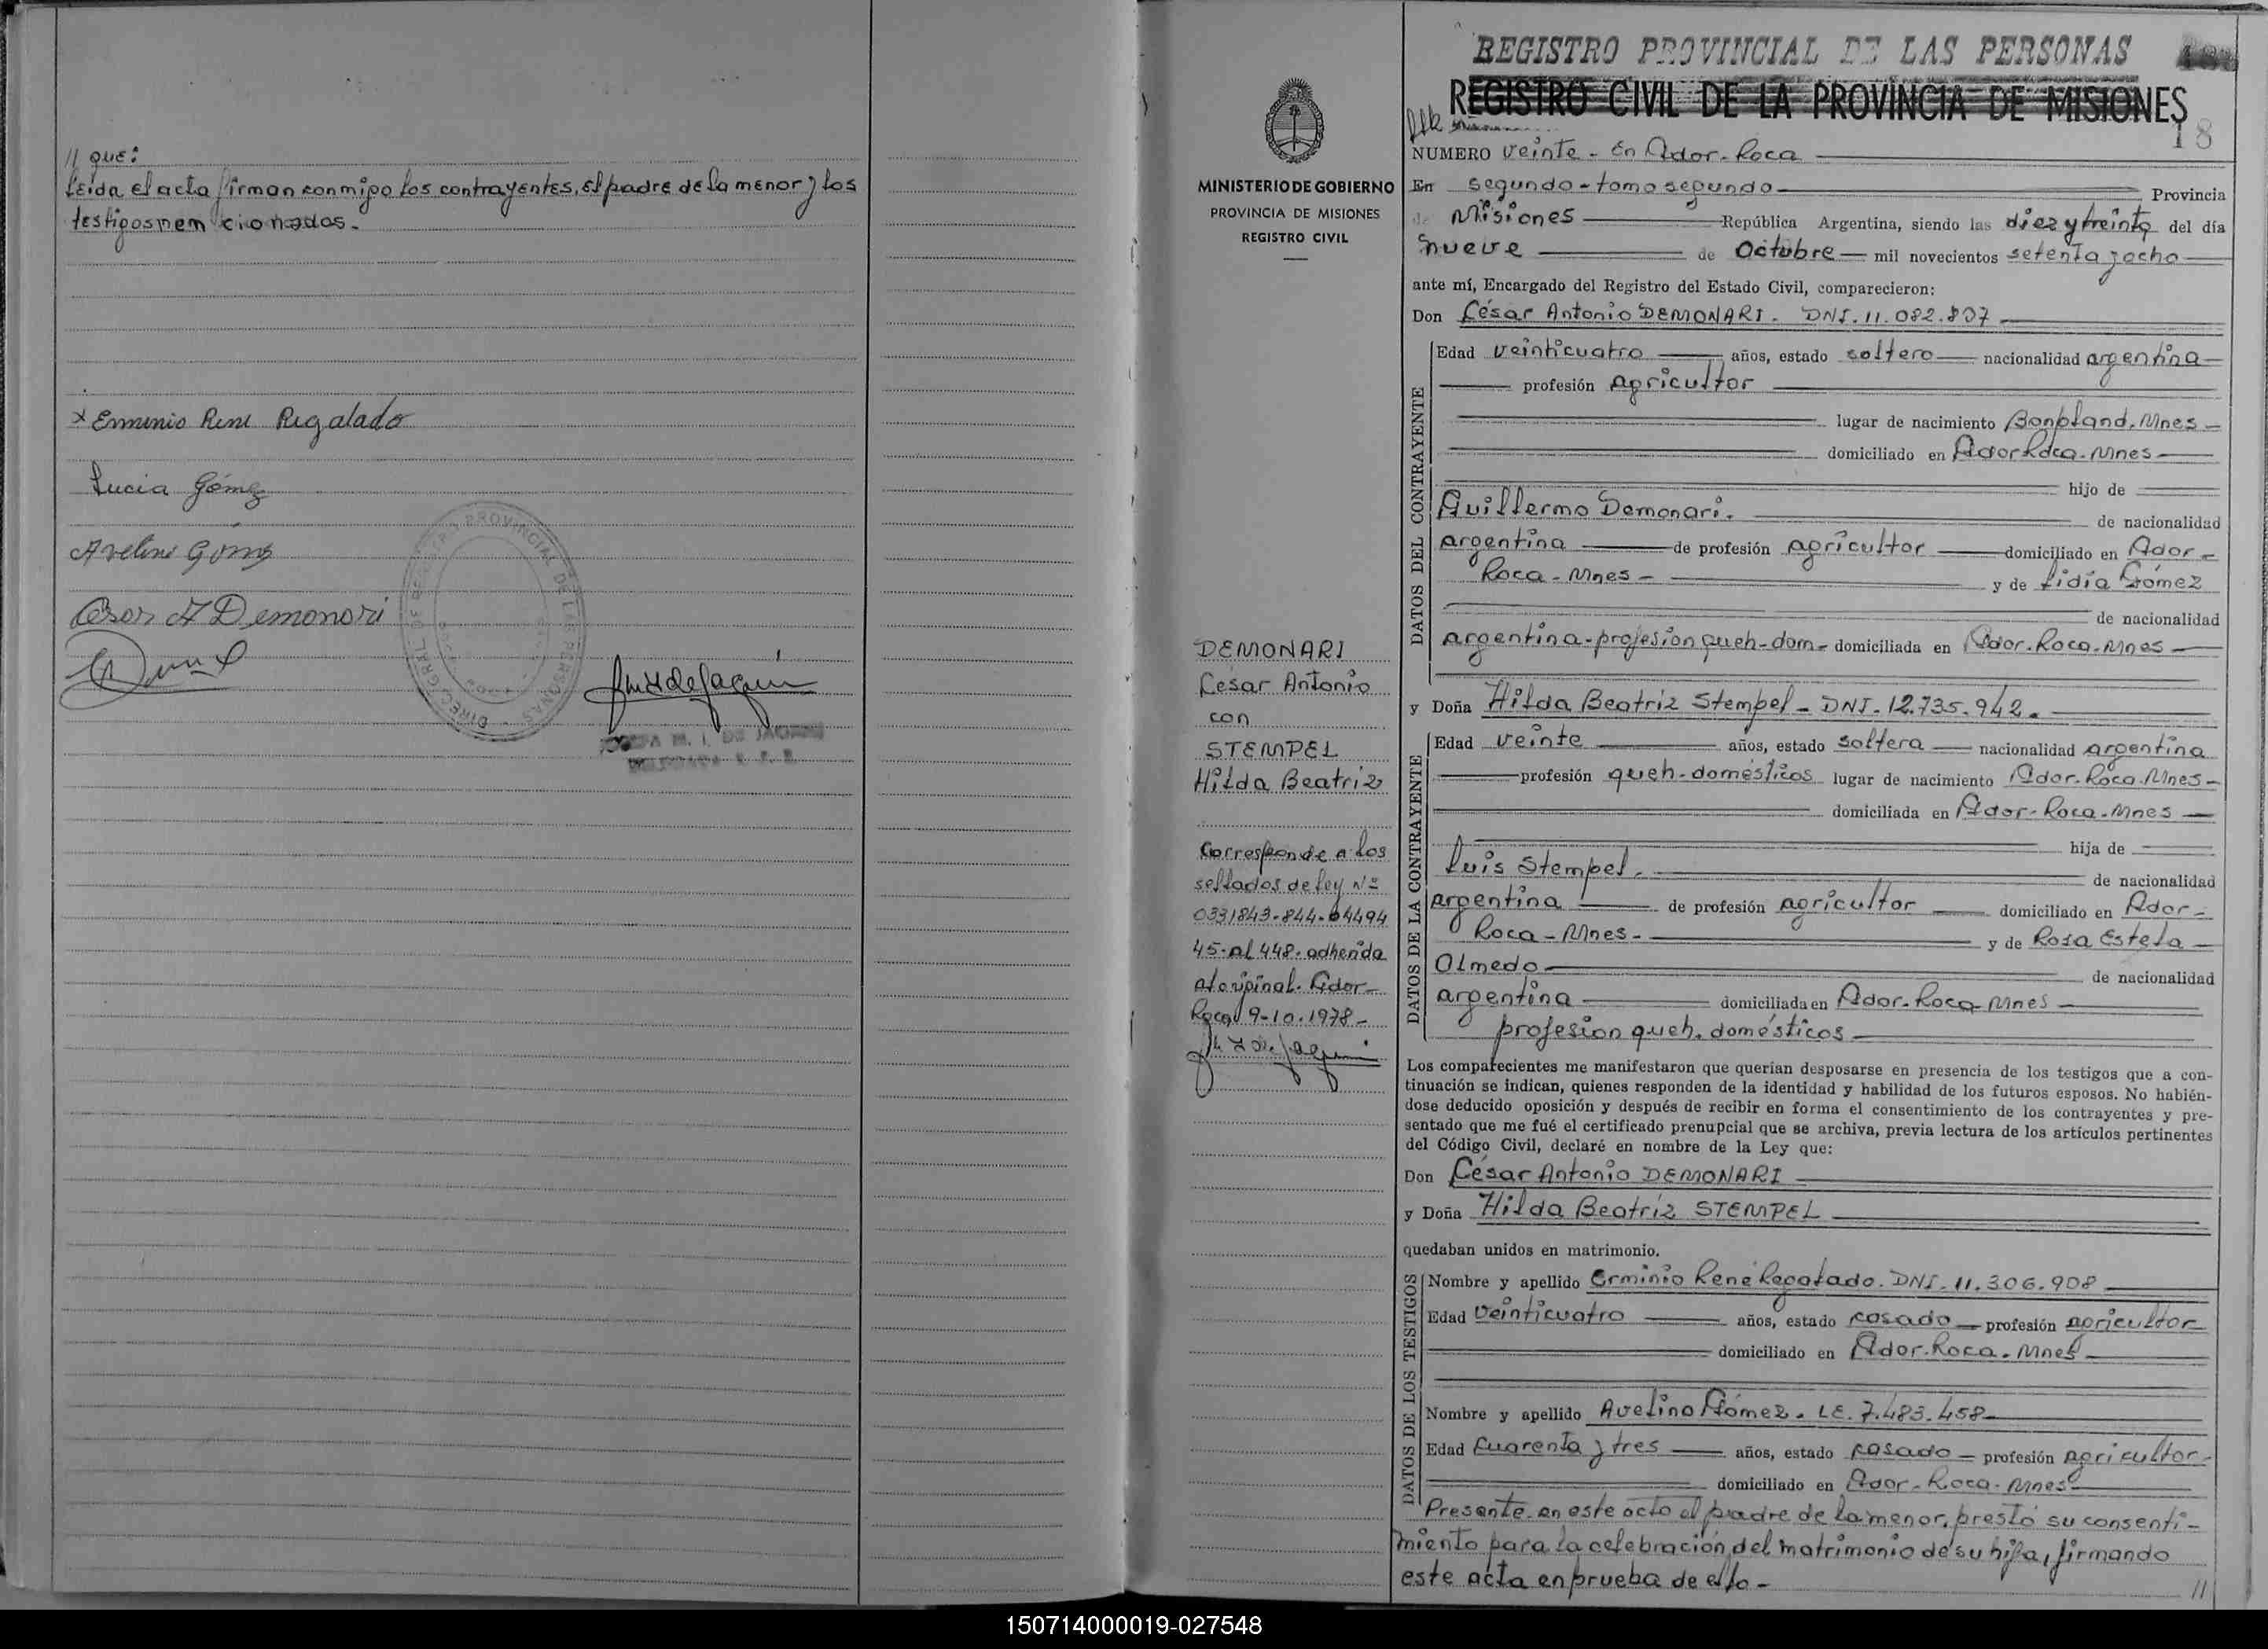 // que:
leída el acta firman conmigo los contrayentes, el padre de la menor y los
testigos mencionados.
x Erminio Rene Regalado
Lucia Gómez
Avelino Gómez
Cesar A Demonari
DIREC. GRAL. DE REGISTRO PROVINCIAL DE LAS PERSONAS
JOSEFA M. I. DE JAQUIN
MINISTERIO DE GOBIERNO
PROVINCIA DE MISIONES
REGISTRO CIVIL
DEMONARI
César Antonio
con
STEMPEL
Hilda Beatriz
Corresponde a los
sellados de ley Nº
0331843-844-04494
45-al 448. adherida
al original. Ador-
Roca 9-10.1978-
REGISTRO PROVINCIAL DE LAS PERSONAS
REGISTRO CIVIL DE LA PROVINCIA DE MISIONES
18
NUMERO veinte - En Ador-Roca
En segundo-tomo segundo Provincia
de Misiones República Argentina, siendo las diez y treinta del día
nueve de Octubre mil novecientos setenta y ocho
ante mí, Encargado del Registro del Estado Civil, comparecieron:
Don César Antonio DEMONARI. DNI. 11.082.837
DATOS DEL CONTRAYENTE
Edad veinticuatro años, estado soltero nacionalidad argentina
profesión agricultor
lugar de nacimiento Bonpland. Mnes
domiciliado en Ador Roca. Mnes
hijo de
Guillermo Demonari. de nacionalidad
argentina de profesión agricultor domiciliado en Ador-
Roca - Mnes - y de Lidia Gómez
de nacionalidad
argentina-profesion queh-dom- domiciliada en Ador. Roca. Mnes
y Doña Hilda Beatriz Stempel - DNI. 12.735.942.
DATOS DE LA CONTRAYENTE
Edad veinte años, estado soltera nacionalidad argentina
profesión queh-domésticos lugar de nacimiento Ador. Roca. Mnes-
domiciliada en Ador-Roca. Mnes
hija de
Luis Stempel. de nacionalidad
argentina de profesión agricultor domiciliado en Ador-
Roca - Mnes- y de Rosa Estela
Olmedo de nacionalidad
argentina domiciliada en Ador. Roca. Mnes
profesion queh. domésticos
Los comparecientes me manifestaron que querían desposarse en presencia de los testigos que a con-
tinuación se indican, quienes responden de la identidad y habilidad de los futuros esposos. No habién-
dose deducido oposición y después de recibir en forma el consentimiento de los contrayentes y pre-
sentado que me fué el certificado prenupcial que se archiva, previa lectura de los artículos pertinentes
del Código Civil, declaré en nombre de la Ley que:
Don César Antonio DEMONARI
y Doña Hilda Beatriz STEMPEL
quedaban unidos en matrimonio.
DATOS DE LOS TESTIGOS
Nombre y apellido Erminio René Regalado. DNI. 11.306.908
Edad veinticuatro años, estado casado profesión agricultor
domiciliado en Ador. Roca. Mnes
Nombre y apellido Avelino Gómez. LE. 7.483.458
Edad Cuarenta y tres años, estado casado profesión agricultor
domiciliado en Ador. Roca. Mnes
Presente en este acto el padre de la menor, prestó su consenti-
miento para la celebración del matrimonio de su hija, firmando
este acta en prueba de ello - //
150714000019-027548